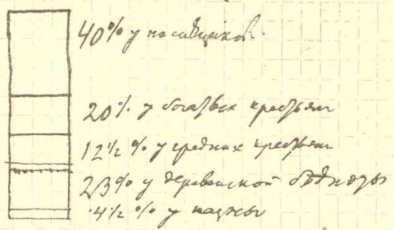 40% у помѣщиков.
20% у богатых крестьян
12 1/2 % у средних крестьян
23% у деревенской бѣдноты
4 1/2 % у казны